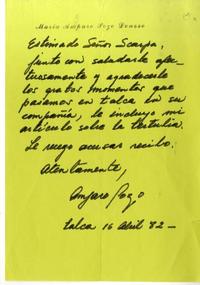 María Amparo Pozo Donoso
Estimado Señor Scarpa,
junto con saludarle afec-
tuosamente y agradecerle
los gratos momentos que
pasamos en talca en su
compañía, le incluyo mi
artículo sobre la tertulia.
Le ruego acusar recibo.
Atentamente,
Amparo Pozo
talca 16 Abril 82 —